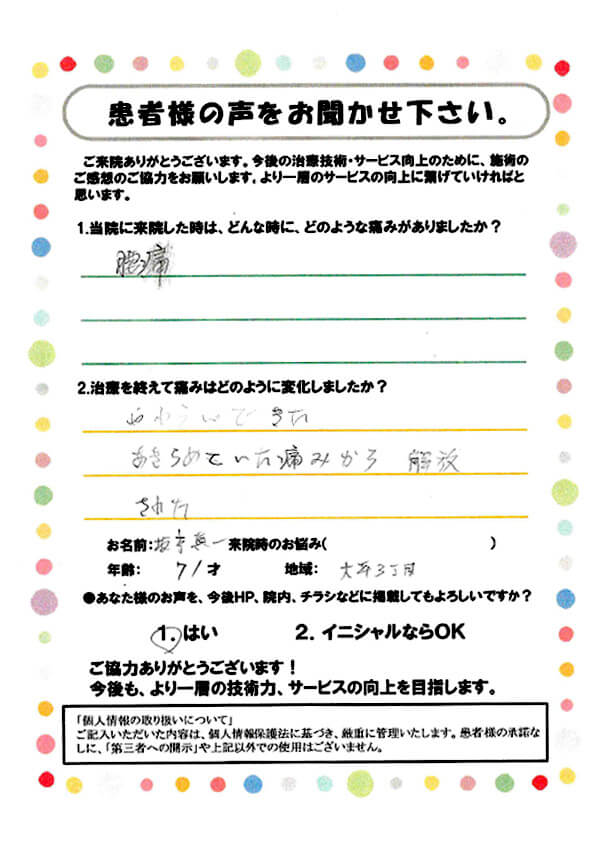 患者様の声をお聞かせ下さい。
ご来院ありがとうございます。今後の治療技術・サービス向上のために、施術の
ご感想のご協力をお願いします。より一層のサービスの向上に繋げていければと
思います。
1.当院に来院した時は、どんな時に、どのような痛みがありましたか？
腰痛
2.治療を終えて痛みはどのように変化しましたか？
やわらいできた
あきらめていた痛みから 解放
された
お名前: 一 来院時のお悩み( )
年齢: 71才 地域: 大平3丁目
●あなた様のお声を、今後HP、院内、チラシなどに掲載してもよろしいですか？
1. はい 2. イニシャルならOK
ご協力ありがとうございます！
今後も、より一層の技術力、サービスの向上を目指します。
「個人情報の取り扱いについて」
ご記入いただいた内容は、個人情報保護法に基づき、厳重に管理いたします。患者様の承諾な
しに、「第三者への開示」や上記以外での使用はございません。